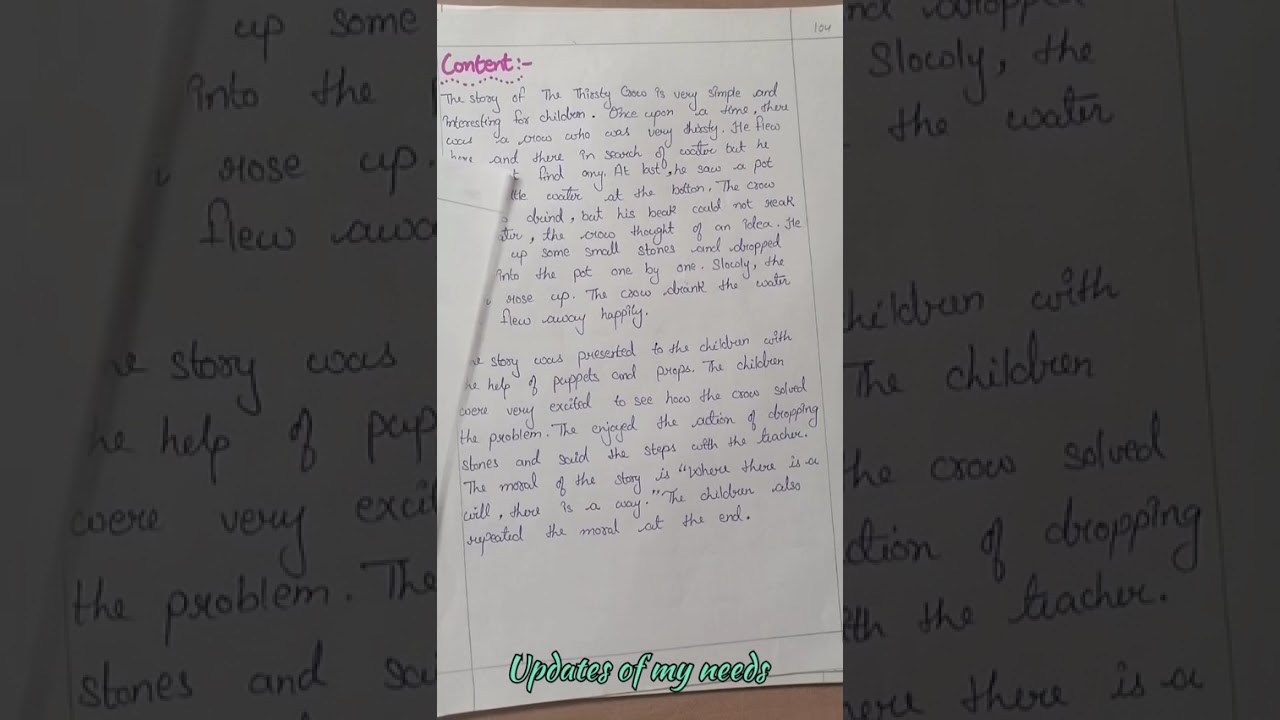 104
Content:-
The story of The Thirsty Crow is very simple and
interesting for children. Once upon a time, there
was a crow who was very thirsty. He flew
here and there in search of water but he
find any. At last, he saw a pot
water at the bottom. The crow
drind, but his beak could not reak
the crow thought of an idea. He
up some small stones and dropped
into the pot one by one. Slowly, the
rose up. The crow drank the water
flew away happily.
story was presented to the children with
help of puppets and props. The children
were very excited to see how the crow solved
the problem. The enjoyed the action of dropping
stones and said the steps with the teacher.
The moral of the story is "Where there is a
will, there is a way." The children also
repeated the moral at the end.
Updates of my needs